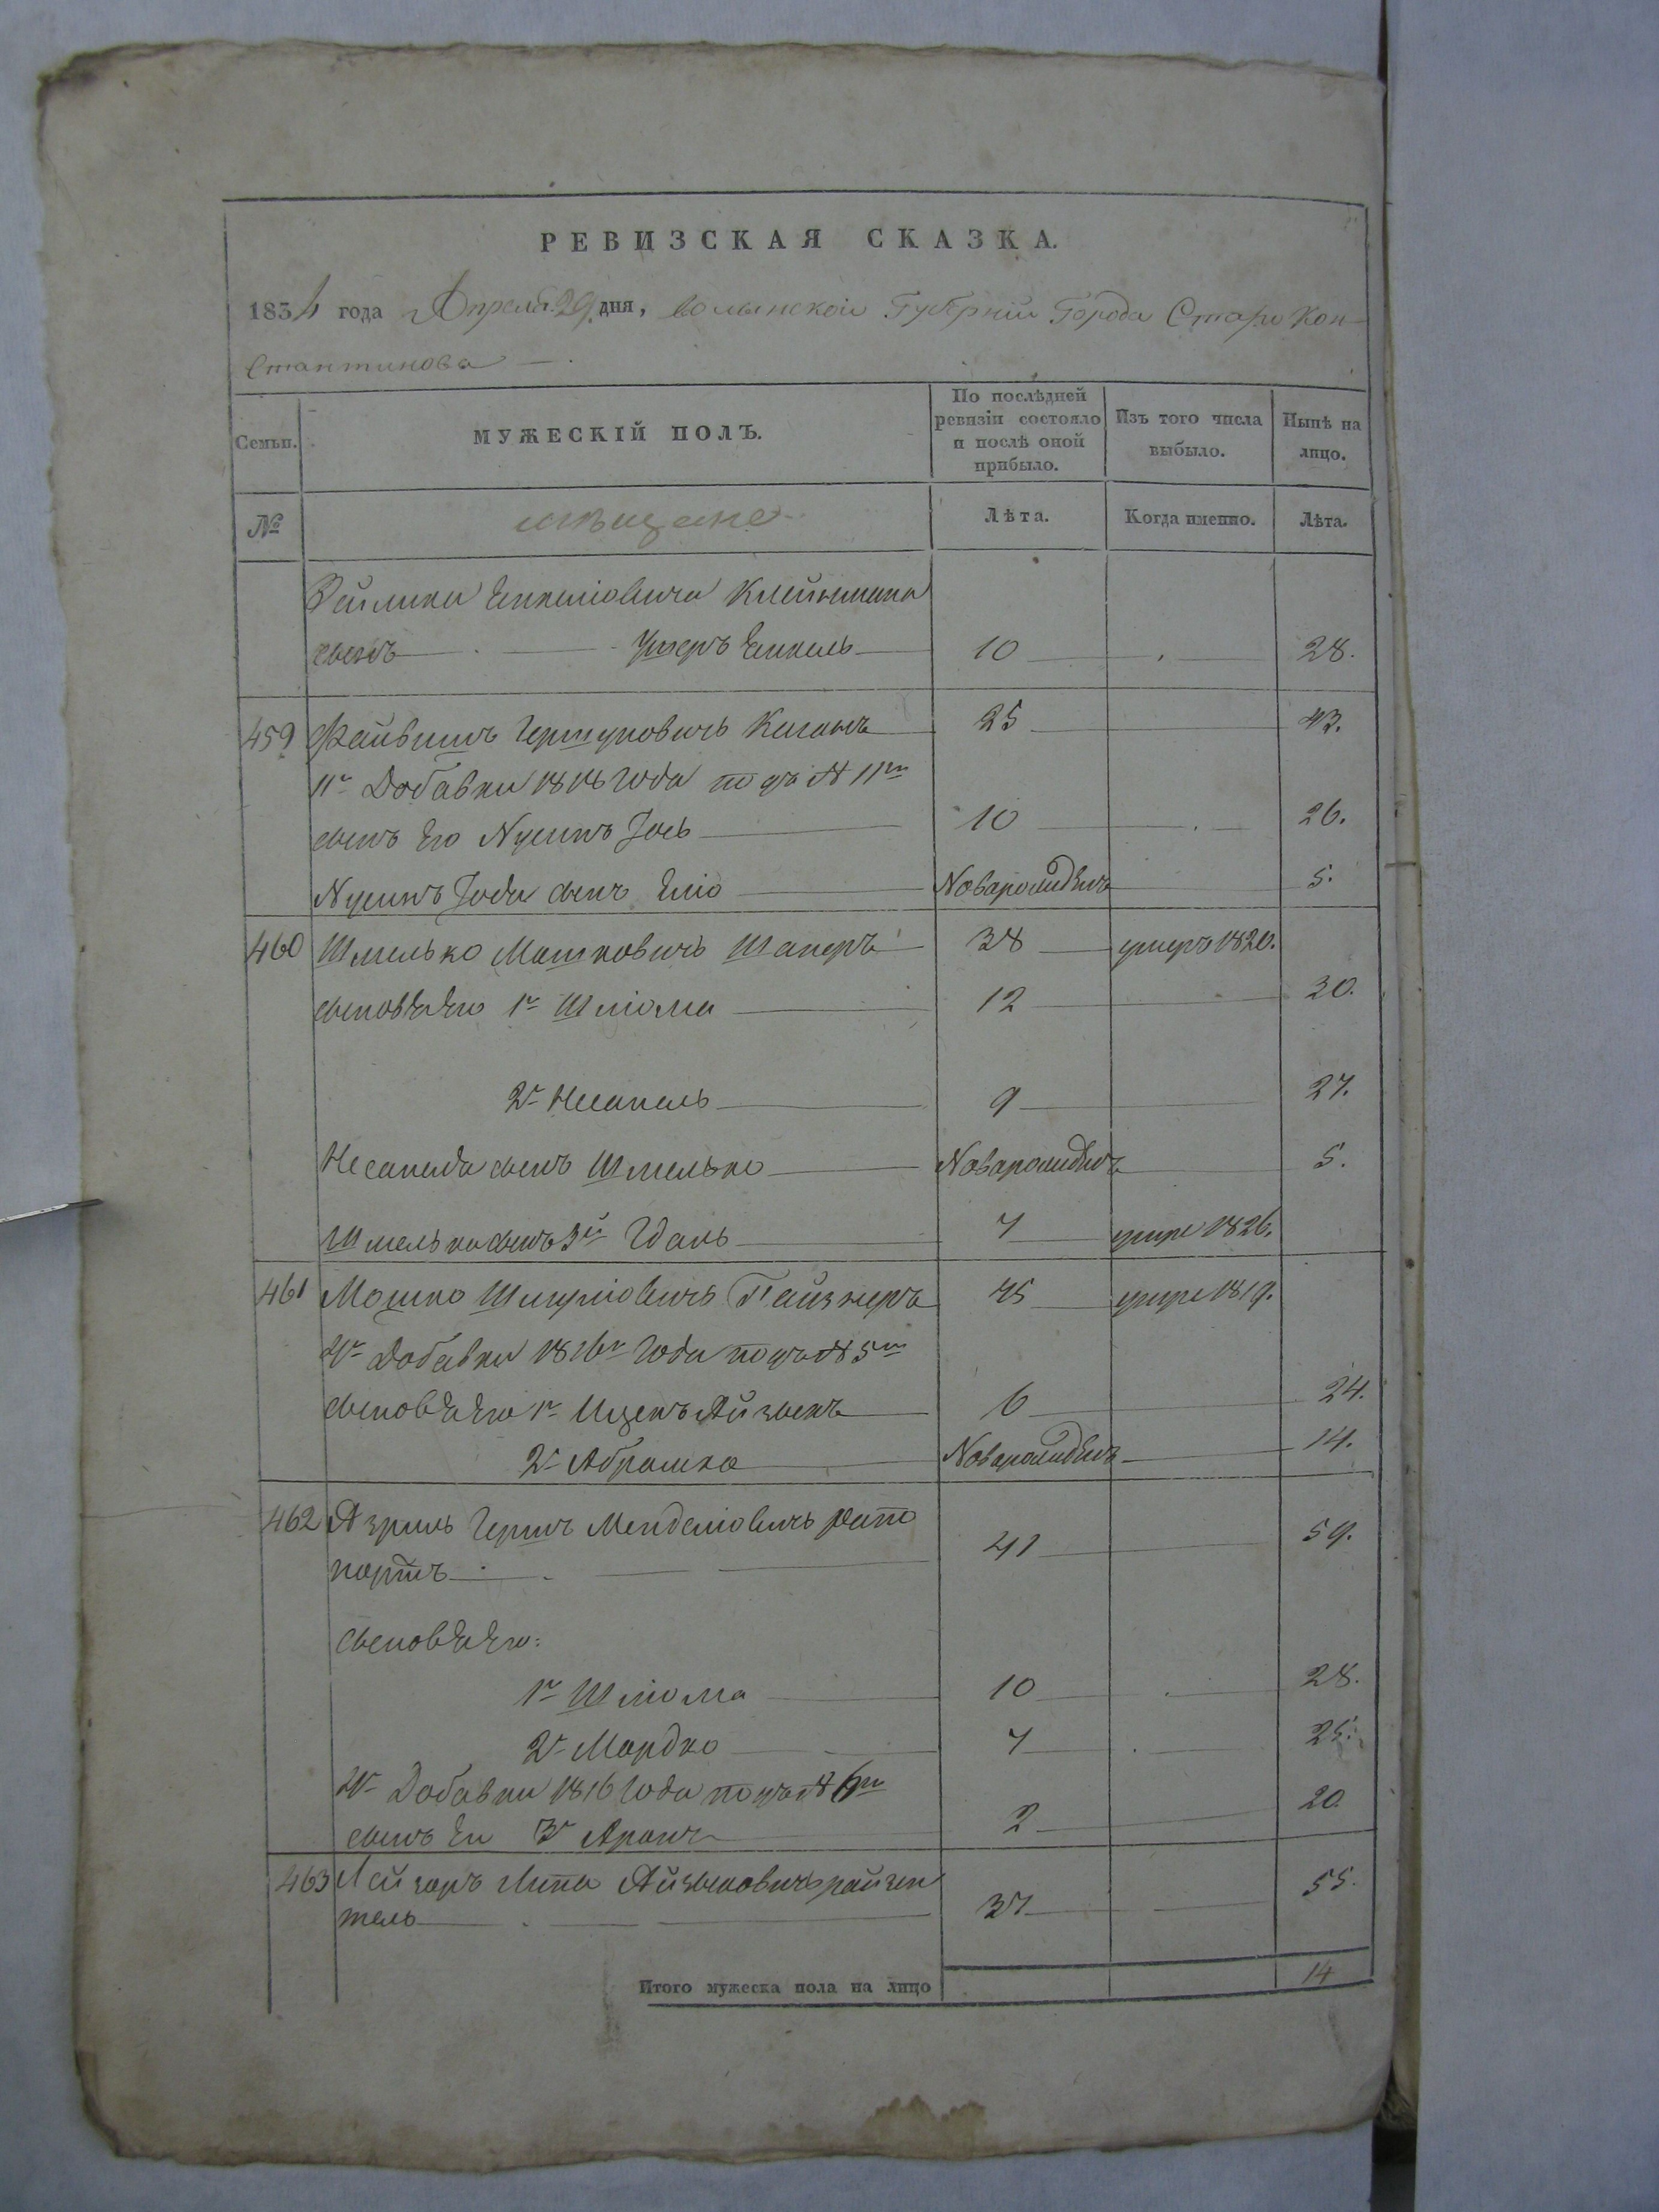 РЕВИЗСКАЯ СКАЗКА.
1834 года Апреля 29 дня, Волынской Губернии Города Старо Кон-
стантинова
Семьи.
МУЖЕСКІЙ ПОЛЪ.
По послѣдней ревизіи состояло и послѣ оной прибыло.
Изъ того числа выбыло.
Нынѣ на лицо.
№
мѣщане
Лѣта.
Когда именно.
Лѣта.
Клейнмана
сынъ Ушеръ Енкель 10 28.
459 Файвишъ Гершуновичъ Каганъ 25 43.
Добавки 1818 года подъ № 11м
сынъ Его Нусинъ Іось 10 26.
Нусинъ Іося сынъ Еліо Новорожденъ 5.
460 Шмелько Мошковичъ Шаперъ 38 умеръ 1820.
сыновья Его 1й Шліома 12 30.
2й Несанель 9 27.
Несанеля сынъ Шмелько Новорожденъ 5.
Шмелька сынъ 3й Гдаль 7 умре 1826.
461 Мошко Шмуліовичъ Пайзнеръ 45 умре 1819.
Добавки 1816г года подъ № 5м
сыновья Его 1й Ицекъ Айзыкъ 6 24.
2й Абрашко Новорожденъ 14.
462 Азриль Гершъ Менделіовичъ Рапо
портъ 41 59.
сыновья Его:
1й Шліома 10 28.
2й Мордко 7 25.
Добавки 1816 года подъ № 6м
сынъ Ег 3й Аронъ 2 20
463 Лейзоръ Липа Айзыковичъ райзен
тель 37 55.
Итого мужеска пола на лицо 14